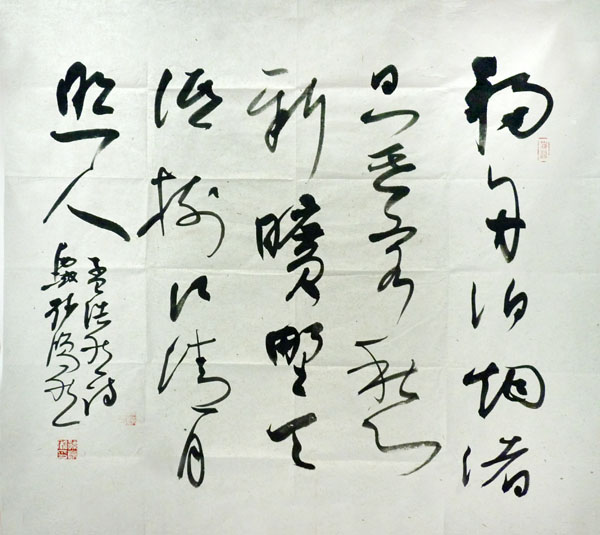 移舟泊烟渚
日暮客愁
新曠野天
低樹江清月
照人
孟浩然诗